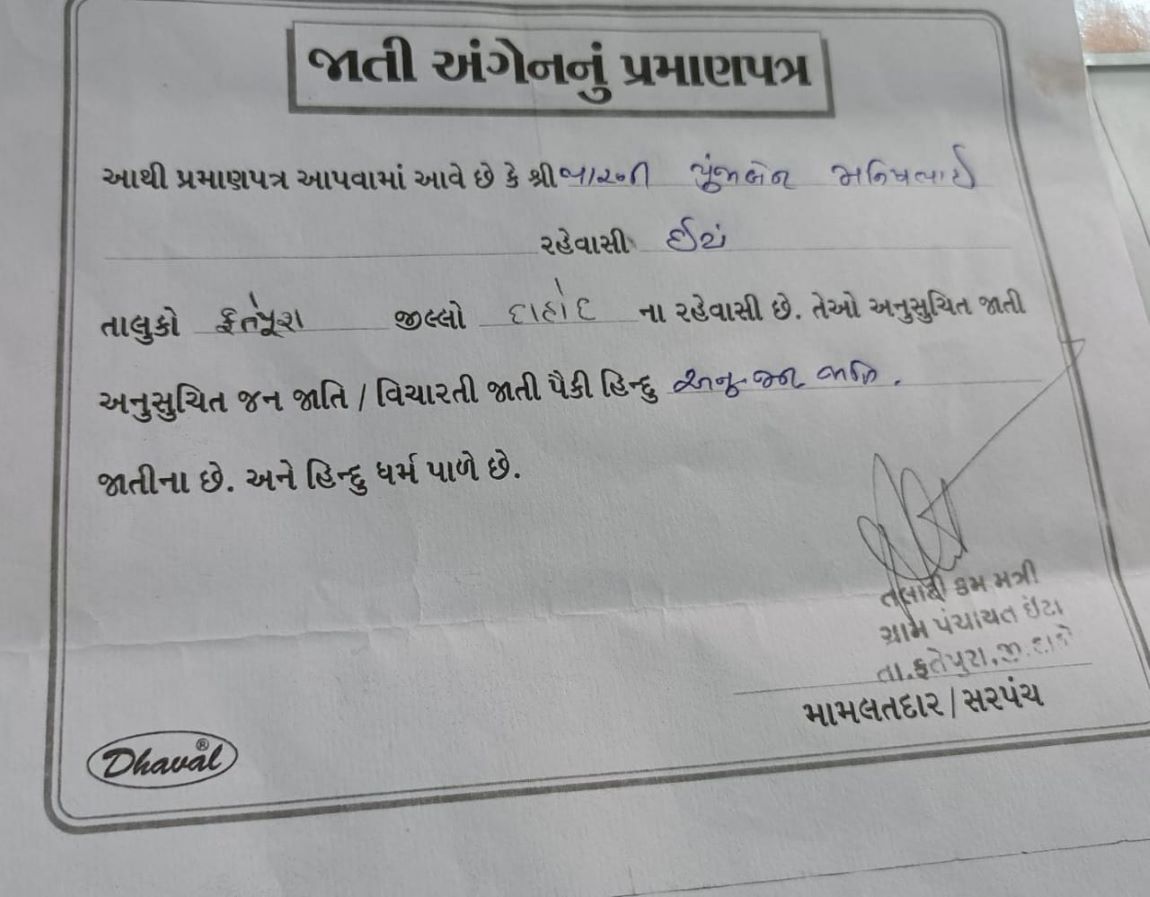 જાતી અંગેનનું પ્રમાણપત્ર
આથી પ્રમાણપત્ર આપવામાં આવે છે કે શ્રી
રહેવાસી
તાલુકો ફતેપુરા જીલ્લો દાહોદ ના રહેવાસી છે. તેઓ અનુસુચિત જાતી
અનુસુચિત જન જાતિ / વિચારતી જાતી પૈકી હિન્દુ અનુ. જન જાતિ.
જાતીના છે. અને હિન્દુ ધર્મ પાળે છે.
તલાટી કમ મંત્રી
ગ્રામ પંચાયત ઇંટા
તા. ફતેપુરા, જી. દાહોદ
મામલતદાર / સરપંચ
Dhaval®